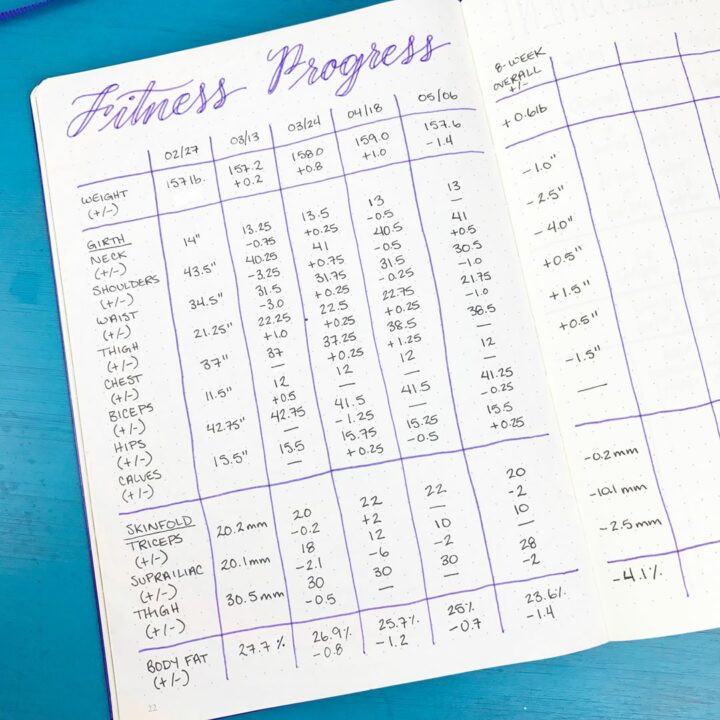 Fitness Progress
8-WEEK
OVERALL
+/-
02/27 03/13 03/24 04/18 05/06
WEIGHT 157lb. 157.2 158.0 159.0 157.6 +0.6lb
(+/-) +0.2 +0.8 +1.0 -1.4
GIRTH
NECK 14" 13.25 13.5 13 13 -1.0"
(+/-) -0.75 +0.25 -0.5 —
SHOULDERS 43.5" 40.25 41 40.5 41 -2.5"
(+/-) -3.25 +0.75 -0.5 +0.5
WAIST 34.5" 31.5 31.75 31.5 30.5 -4.0"
(+/-) -3.0 +0.25 -0.25 -1.0
THIGH 21.25" 22.25 22.5 22.75 21.75 +0.5"
(+/-) +1.0 +0.25 +0.25 -1.0
CHEST 37" 37 37.25 38.5 38.5 +1.5"
(+/-) — +0.25 +1.25 —
BICEPS 11.5" 12 12 12 12 +0.5"
(+/-) +0.5 — — —
HIPS 42.75" 42.75 41.5 41.5 41.25 -1.5"
(+/-) — -1.25 — -0.25
CALVES 15.5" 15.5 15.75 15.25 15.5 —
(+/-) — +0.25 -0.5 +0.25
SKINFOLD
TRICEPS 20.2mm 20 22 22 20 -0.2mm
(+/-) -0.2 +2 — -2
SUPRAILIAC 20.1mm 18 12 10 10 -10.1mm
(+/-) -2.1 -6 -2 —
THIGH 30.5mm 30 30 30 28 -2.5mm
(+/-) -0.5 — — -2
BODY FAT 27.7% 26.9% 25.7% 25% 23.6% -4.1%
(+/-) -0.8 -1.2 -0.7 -1.4
22